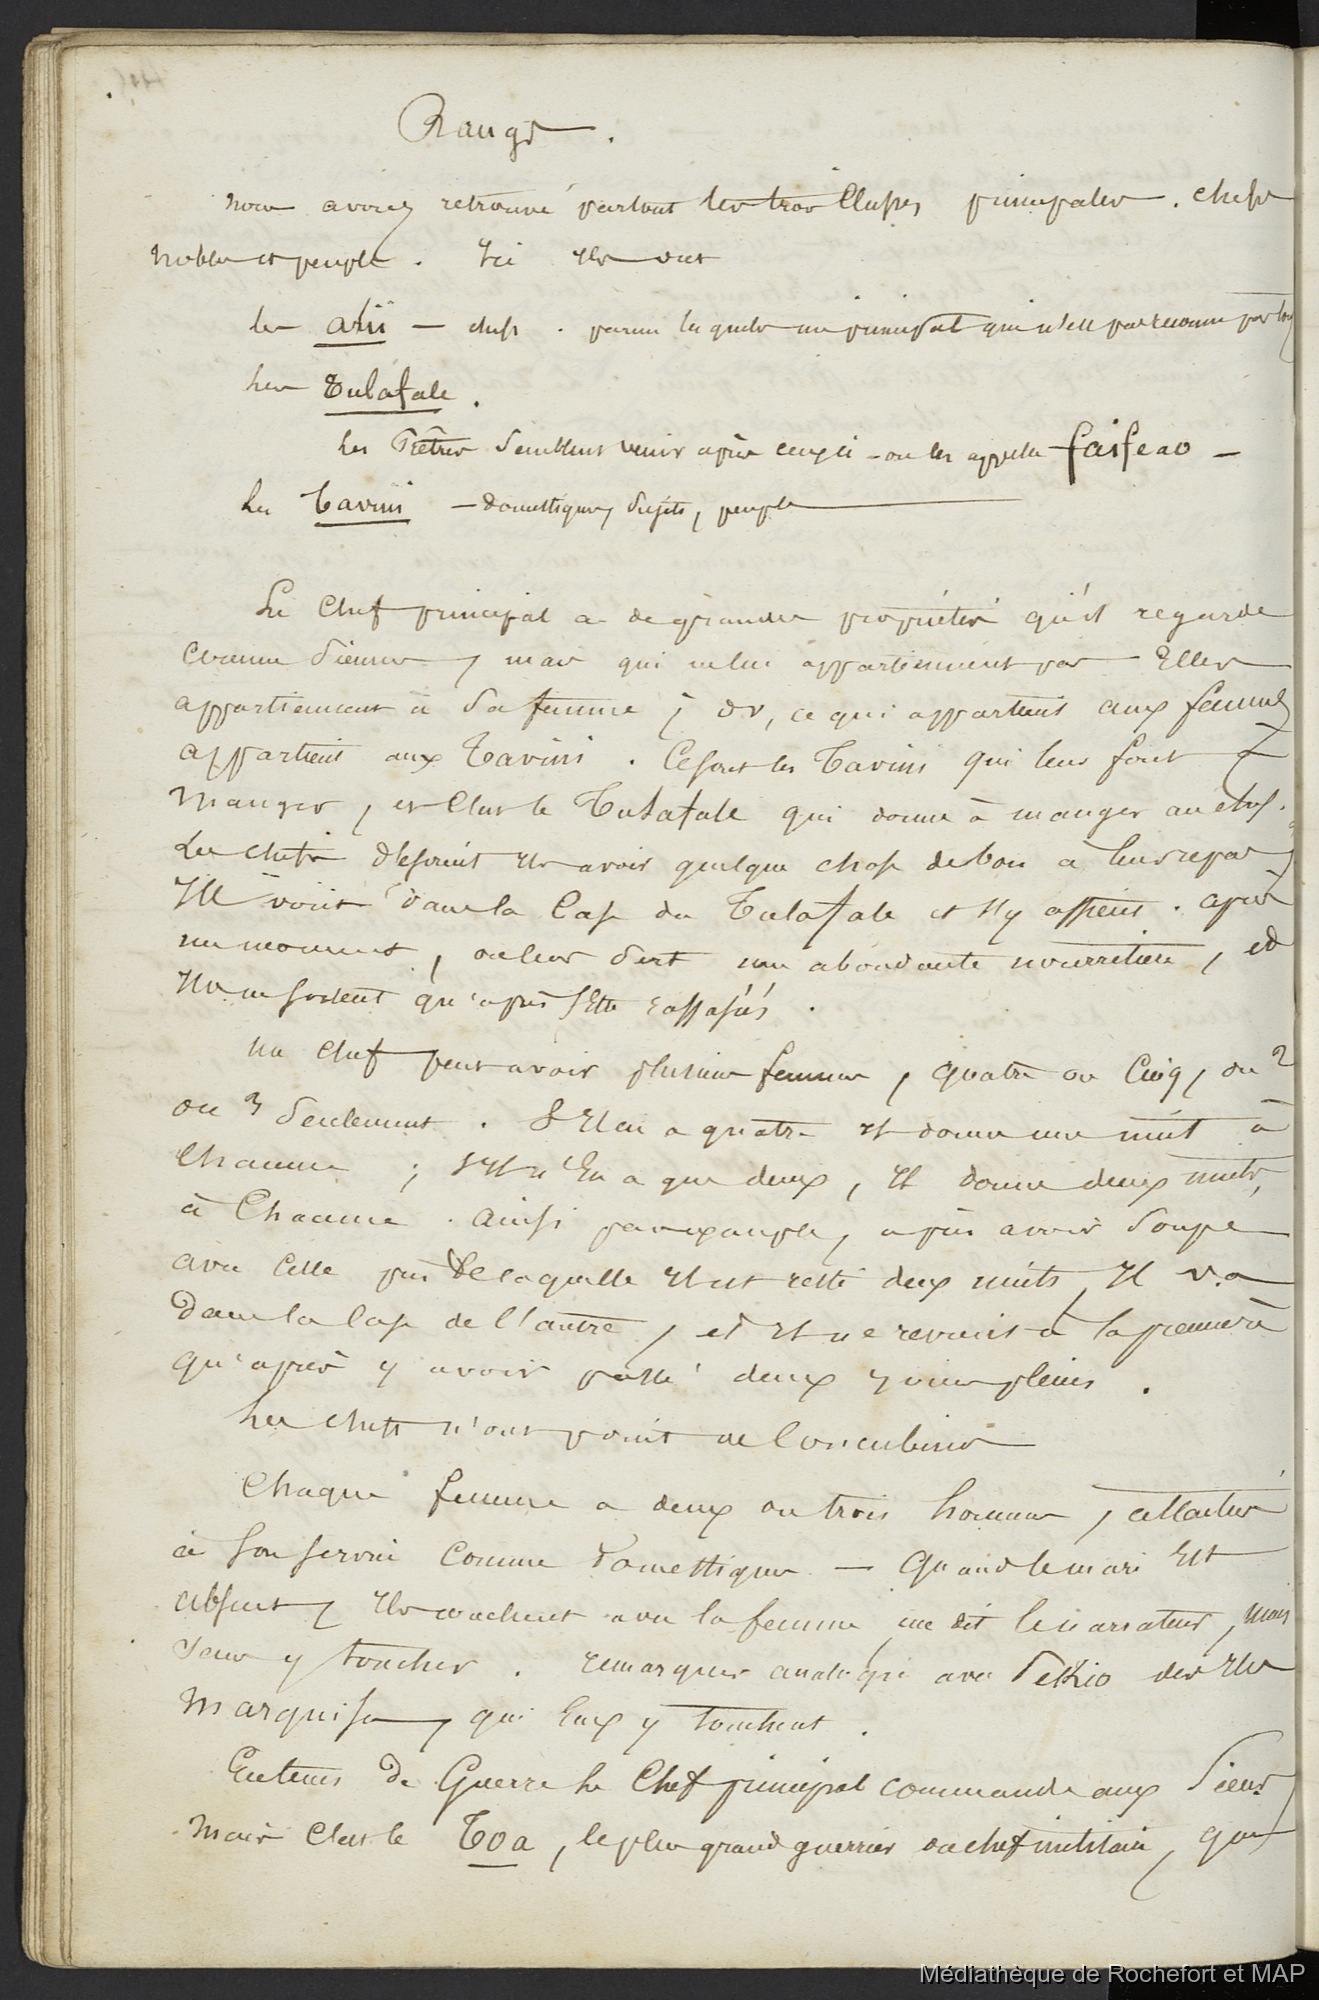 Rangs.
nous avons retrouvé partout les trois Classes principales. chefs
nobles et peuple. Ici Ils sont
les alii — chefs. parmi lesquels un principal qui n'est pas reconnu par tous
les Tulafale.
les Prêtres semblent venir après ceux-ci — on les appelle faifeao —
les Tavini — domestiques, sujets, peuple
Le Chef principal a de grandes propriétés qu'il regarde
comme siennes, mais qui ne lui appartiennent pas — Elles
appartiennent à sa femme; or, ce qui appartient aux femmes
appartient aux Tavini. Ce sont les Tavini qui leur font
manger, et C'est le Tulafale qui donne à manger au chef.
Les chefs désirent Ils avoir quelque chose de bon à leur repas,
Ils vont dans la Case du Tulafale et s'y assient. après
un moment, on leur sert une abondante nourriture, et
Ils ne sortent qu'après s'être rassasiés.
Un Chef peut avoir plusieurs femmes, quatre ou Cinq, ou 2
ou 3 seulement. S'Il en a quatre Il donne une nuit à
Chacune; s'Il n'En a que deux, Il donne deux nuits,
à Chacune. Ainsi par exemple, après avoir soupé
avec Celle près De laquelle Il est resté deux nuits, Il va
dans la Case de l'autre, et Il ne revient à la première
qu'après y avoir passé deux jours pleins.
Les chefs n'ont point de Concubines
Chaque femme a deux ou trois hommes, attachés
à son service Comme domestiques — Quand le mari Est
absent, Ils couchent avec la femme, me dit le narrateur, mais
sans y toucher. remarquer analogie avec Pekio des Iles
Marquises, qui Eux y touchent.
En tems de Guerre le Chef principal commande aux siens
Mais C'est le Toa, le plus grand guerrier ou chef militaire, qui
Médiathèque de Rochefort et MAP